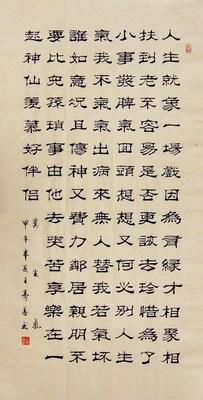 人生就象一場戲因為有緣才相聚相
扶到老不容易是否更該去珍惜為了
小事發脾氣回頭想想又何必別人生
氣我不氣氣出病來無人替我若氣坏
誰如意況且傷神又費力鄰居親朋不
要比兒孫瑣事由他去吃苦享樂在一
起神仙羨慕好伴侶
莫生氣
甲午年夏王